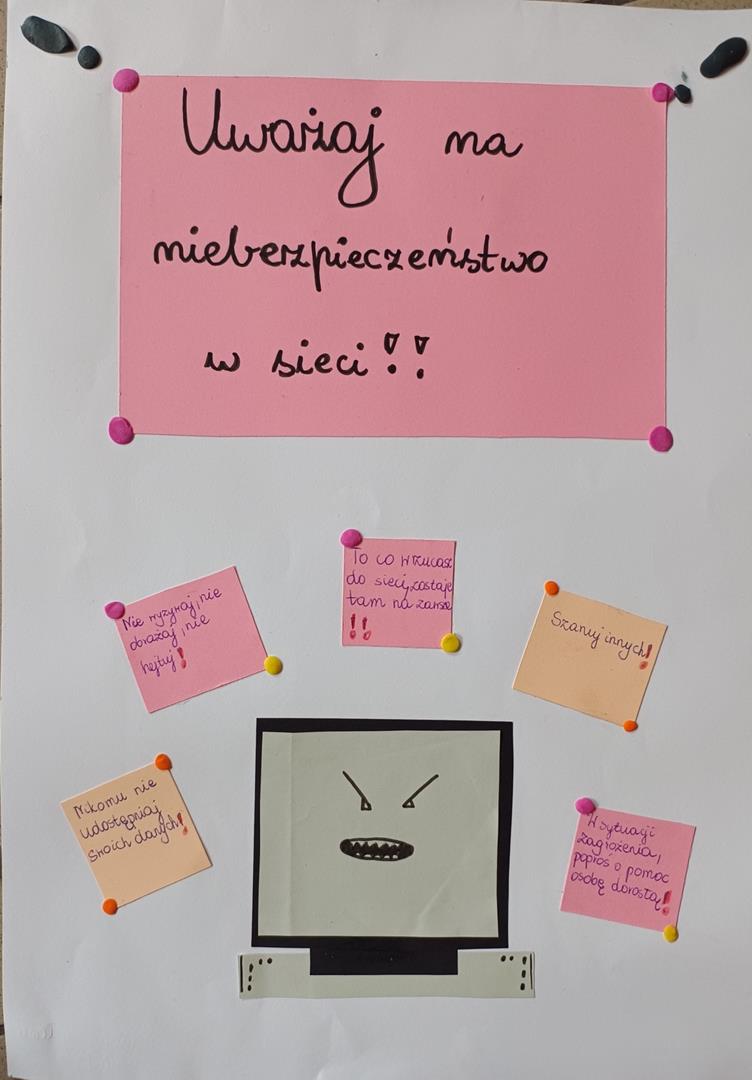 Uważaj na
niebezpieczeństwo
w sieci!!
To co wrzucasz
do sieci, zostaje
tam na zawsze
!!
Nie wyzywaj, nie
obrażaj, nie
hejtuj!
Szanuj innych!
Nikomu nie
udostępniaj
swoich danych!
W sytuacji
zagrożenia,
poproś o pomoc
osobę dorosłą!